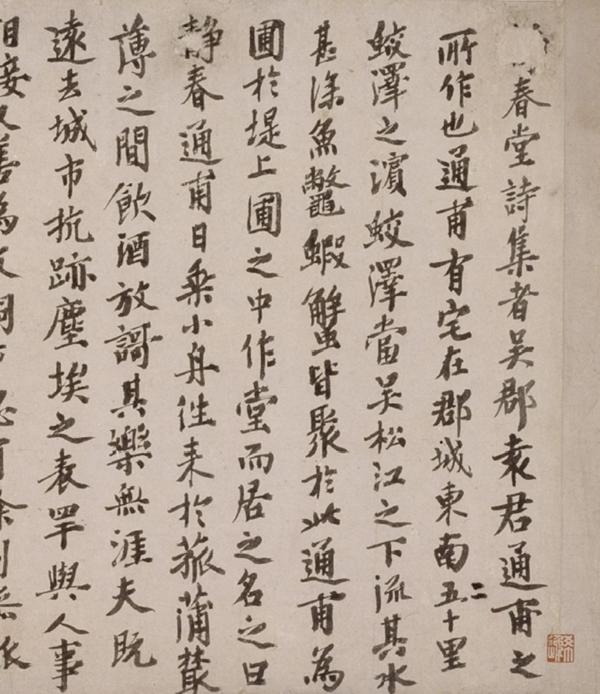 春堂詩集者吴郡袁君通甫之
所作也通甫有宅在郡城東南五二十里
蛟澤之濱蛟澤當吴松江之下流其水
甚深魚鼈蝦蟹皆聚於此通甫為
圃於堤上圃之中作堂而居之名之曰
静春通甫日乗小舟往来於菰蒲叢
薄之間飲酒放謌其樂無涯夫既
遠去城市抗跡塵埃之表罕與人事
相接又善為文詞